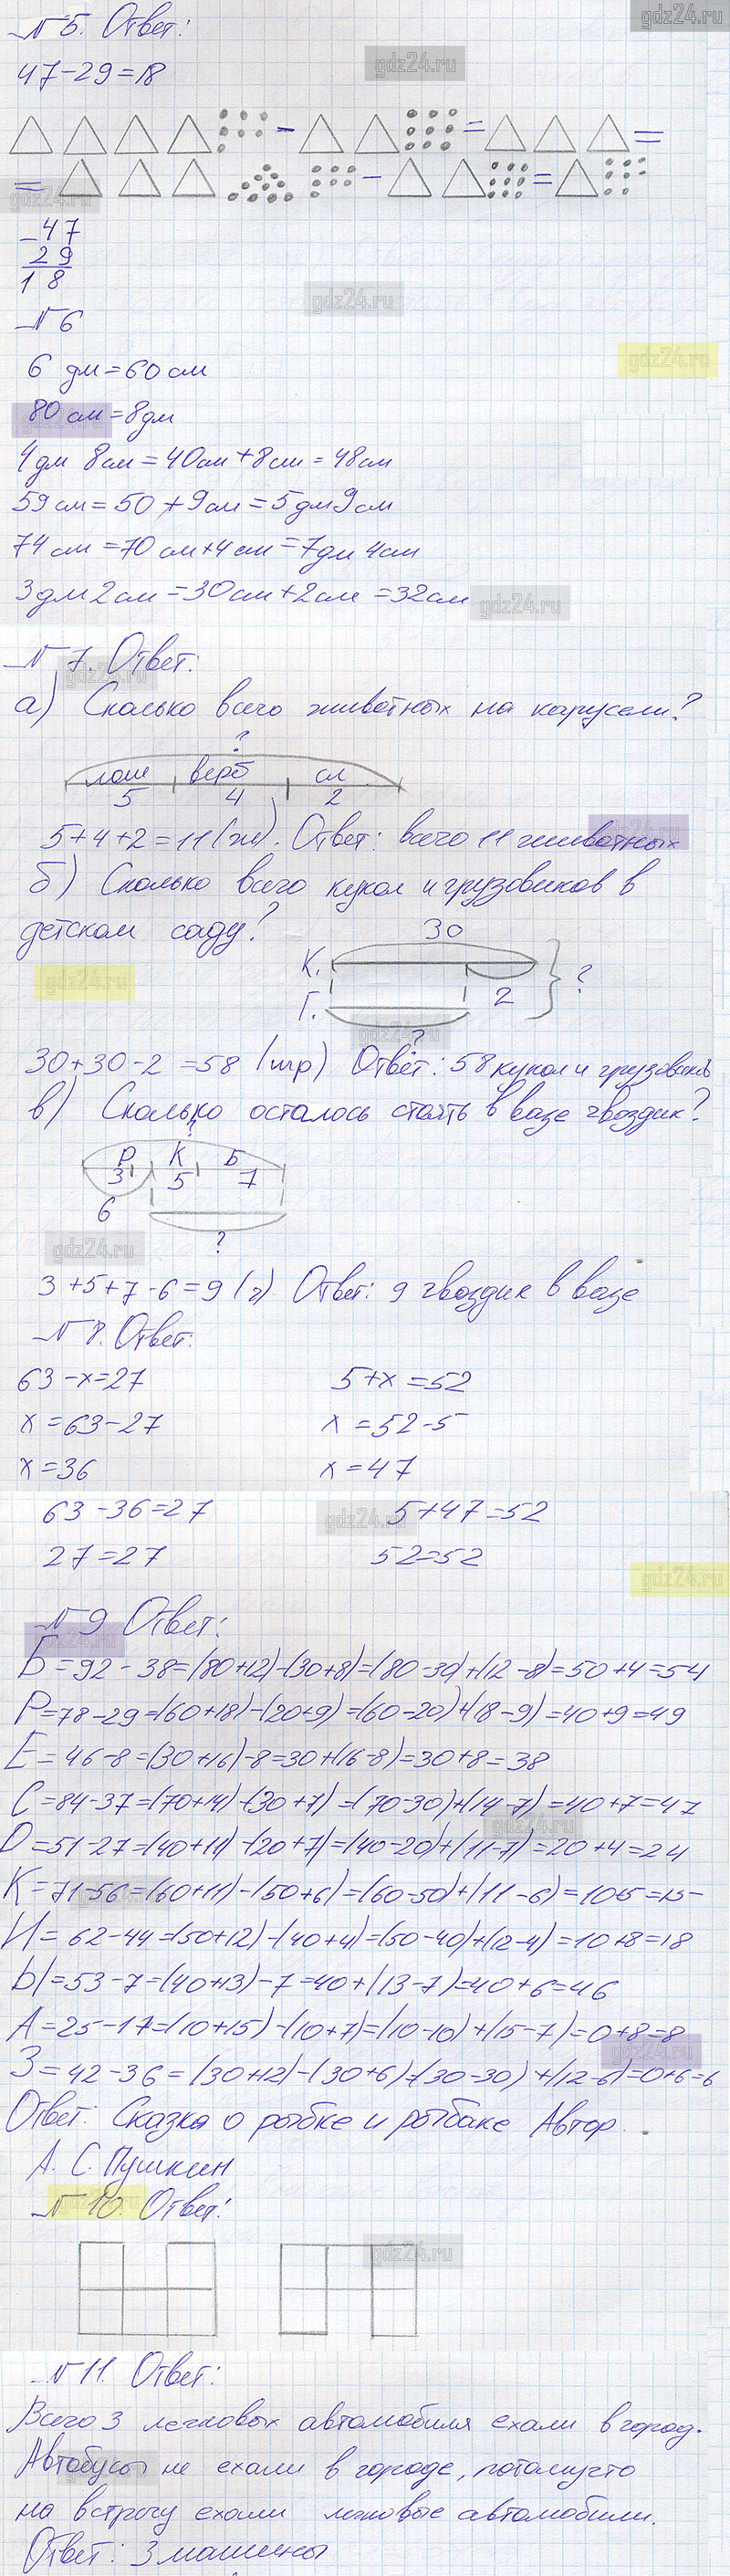 gdz24.ru
№5. Ответ:
47-29=18
- = =
= - =
-47
29
18
№6
6 дм=60см
80 см=8дм
4дм 8см=40см+8см=48см
59см=50+9см=5дм9см
74см=70см+4см=7дм 4см
3дм2см=30см+2см=32см
№7. Ответ:
а) Сколько всего животных на карусели?
?
лош верб сл
5 4 2
5+4+2=11(ж). Ответ: всего 11 животных
б) Сколько всего кукол и грузовиков в
детском саду?
30
К.
2 ?
Г.
?
30+30-2=58 (игр) Ответ: 58 кукол и грузовиков
в) Сколько осталось стоять в вазе гвоздик?
?
Р К Б
3 5 7
6
?
3+5+7-6=9(г) Ответ: 9 гвоздик в вазе
№8. Ответ:
63-х=27 5+х=52
х=63-27 х=52-5
х=36 х=47
63-36=27 5+47=52
27=27 52=52
№9 Ответ:
Б=92-38=(80+12)-(30+8)=(80-30)+(12-8)=50+4=54
Р=78-29=(60+18)-(20+9)=(60-20)+(18-9)=40+9=49
Е=46-8=(30+16)-8=30+(16-8)=30+8=38
С=84-37=(70+14)-(30+7)=(70-30)+(14-7)=40+7=47
О=51-27=(40+11)-(20+7)=(40-20)+(11-7)=20+4=24
К=71-56=(60+11)-(50+6)=(60-50)+(11-6)=10+5=15
И=62-44=(50+12)-(40+4)=(50-40)+(12-4)=10+8=18
Ы=53-7=(40+13)-7=40+(13-7)=40+6=46
А=25-17=(10+15)-(10+7)=(10-10)+(15-7)=0+8=8
З=42-36=(30+12)-(30+6)=(30-30)+(12-6)=0+6=6
Ответ: Сказка о рыбке и рыбаке Автор
А. С. Пушкин
№10. Ответ:
№11. Ответ:
Всего 3 легковых автомобиля ехали в город.
Автобусы не ехали в городе, потому что
на встречу ехали легковые автомобили.
Ответ: 3 машины